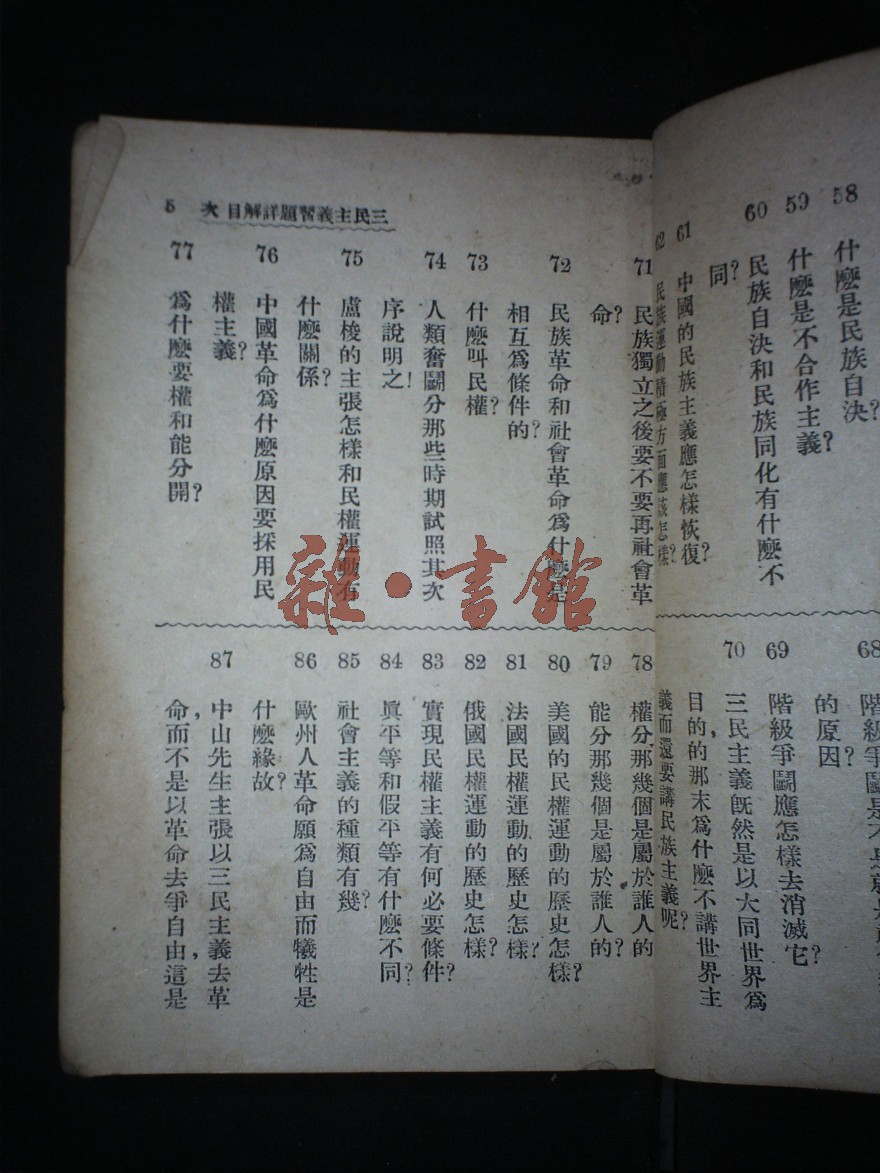 58 什麽是民族自決?
59 什麽是不合作主義?
60 民族自決和民族同化有什麽不
同?
61 中國的民族主義應怎樣恢復?
62 民族運動積極方面應該怎樣?
68 階級爭鬭是不是
的原因?
69 階級爭鬭應怎樣去消滅它?
70 三民主義旣然是以大同世界爲
目的的那末爲什麽不講世界主
義而還要講民族主義呢?
三民主義習題詳解目次 5
71 民族獨立之後要不要再社會革
命?
72 民族革命和社會革命爲什麽是
相互爲條件的?
73 什麽叫民權?
74 人類奮鬭分那些時期試照其次
序說明之!
75 盧梭的主張怎樣和民權運動有
什麽關係?
76 中國革命爲什麽原因要採用民
權主義?
77 爲什麽要權和能分開?
78 權分那幾個是屬於誰人的
79 能分那幾個是屬於誰人的?
80 美國的民權運動的歷史怎樣?
81 法國民權運動的歷史怎樣?
82 俄國民權運動的歷史怎樣?
83 實現民權主義有何必要條件?
84 眞平等和假平等有什麽不同?
85 社會主義的種類有幾?
86 歐州人革命願爲自由而犧牲是
什麽緣故?
87 中山先生主張以三民主義去革
命,而不是以革命去爭自由,這是
雜·書館